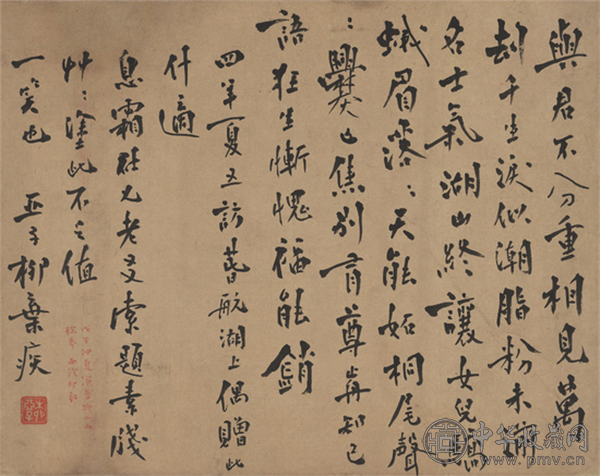 與君不分重相見萬
劫千生淚似潮脂粉未
名士氣湖山終讓女兒驕
蛾眉落〻天能妬桐尾聲
〻爨已焦別有尊前知己
語狂生慚愧福能銷
四年夏五訪萅航湖上偶贈此
什適
息霜社兄老友索題素牋
艸〻塗此不足值
一笑也 亞子柳棄疾
中华收藏网
www.pmv.cn